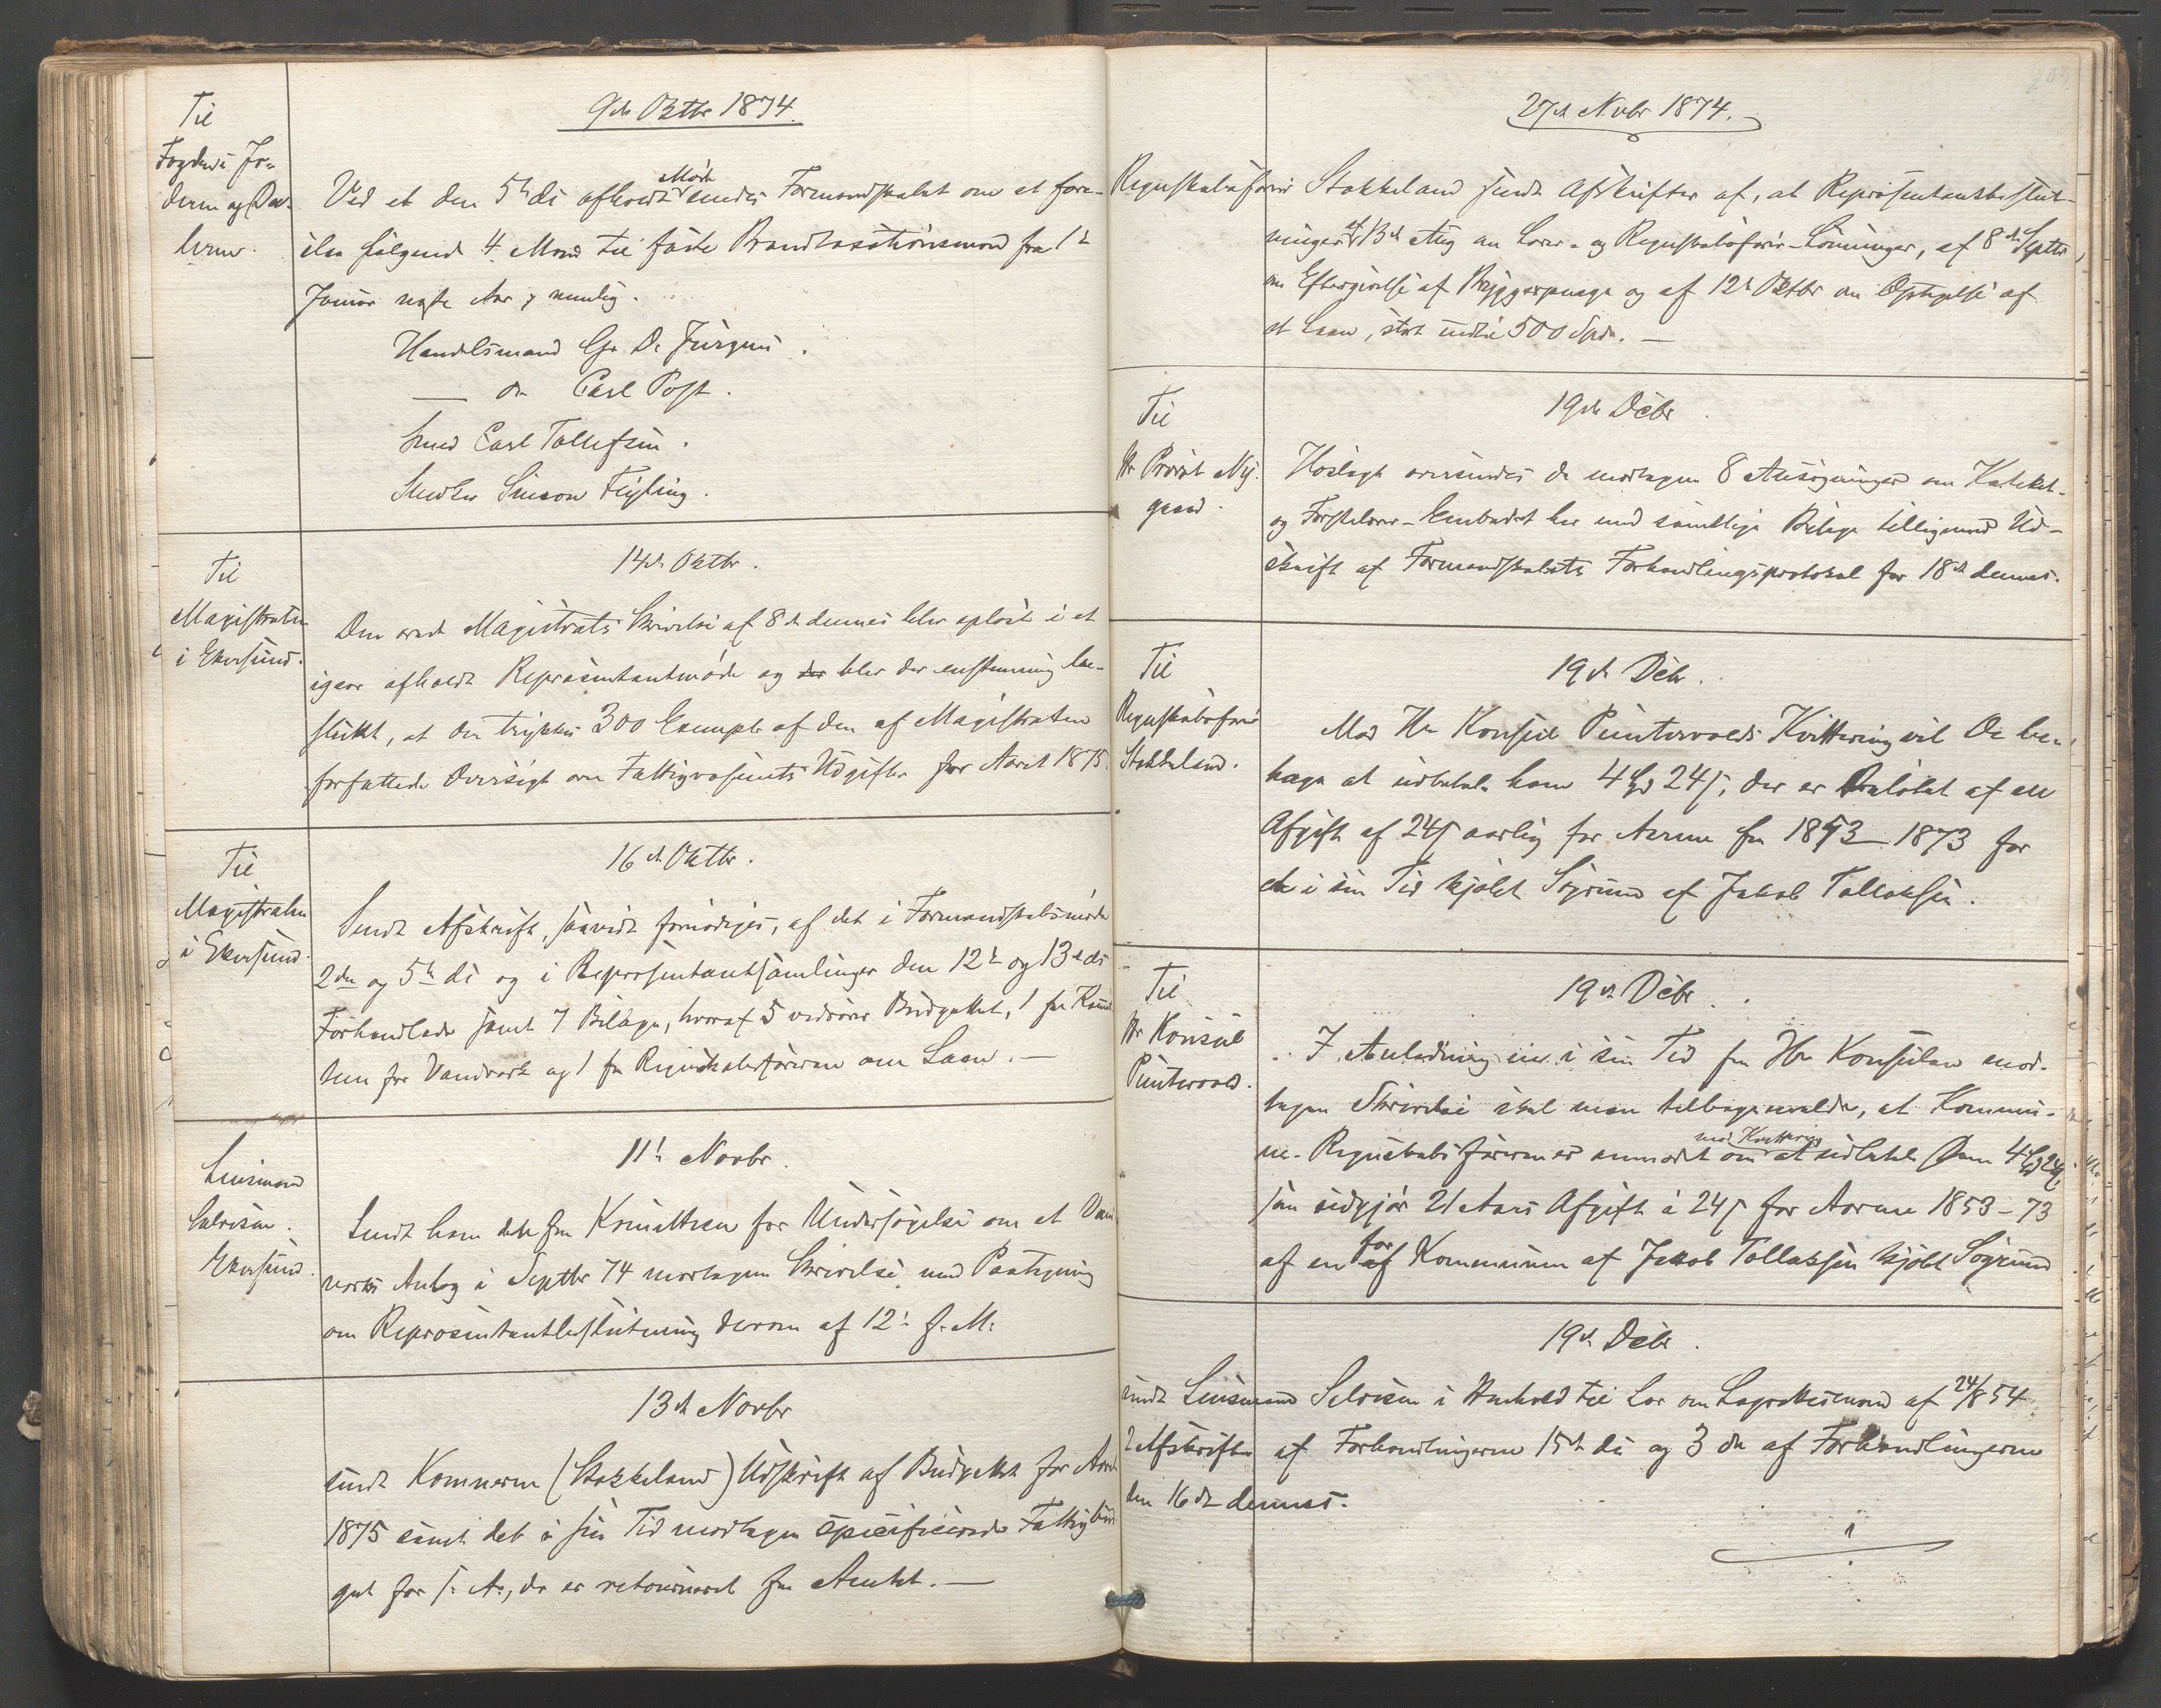 9de Oktbr 1874.
Til
Fogden i Jæ-
deren og Da-
lerne.
Ved et den 5te ds afholdt Møde enedes Formandskabet om at fore-
slaa følgende 4 Mænd til faste Brandtaxationsmænd fra 1ste
Januar næste Aar, nemlig.
Handelsmand Chr. D. Jürgens.
— do Carl Post.
Smed Carl Tollefsen.
Snedker Simon Feyling.
14de Oktbr.
Til
Magistraten
i Ekersund.
Den ærede Magistrats Skrivelse af 8de dennes blev oplæst i et
igaar afholdt Repræsentantmøde og blev der enstemmig be-
sluttet, at der trykkes 300 Exempl. af den af Magistraten
forfattede Oversigt over Fattigvæsenets Udgifter for Aaret 1875.
16de Oktbr.
Til
Magistraten
i Ekersund.
Sendt Afskrift, saavidt fornødiges, af det i Formandskabsmøde
2den og 5te ds og i Repræsentantsamlinger den 12te og 13de ds
Forhandlede samt 7 Bilage, hvoraf 5 vedrører Budgettet, 1 fra Komi-
teen for Vandværk og 1 fra Regnskabsføreren om Laan. —
11te Novbr.
Lensmand
Salvesen.
Ekersund.
Sendt ham dette fra Komitteen for Undersøgelse om et Van-
værks Anlæg i Septbr 74 modtagne Skrivelse med Paategning
om Repræsentantbeslutning derom af 12te f. M.
13de Novbr
sendt Kæmneren (Stokkeland) Udskrift af Budgettet for Aaret
1875 samt det i sin Tid modtagne specificerede Fattigbud-
get for s. A., der er retourneret fra Amtet. —
27de Nvbr 1874.
Regnskabsfører Stokkeland sendt Afskrifter af, at Repræsentantbeslut-
ninger af 13de Aug om Lærer- og Regnskabsfører-Lønninger, af 8de Septbr
om Eftergivelse af Bryggepenge og af 12te Oktbr om Optagelse af
et Laan, stort indtil 500 Spd. —
19de Debr.
Til
Hr Provst Ny-
gaard.
Hoslagt oversendes de modtagne 8 Ansøgninger om Kateket-
og Førstelærer-Embedet her med samtlige Bilage tilligemed Ud-
skrift af Formandskabets Forhandlingsprotokol for 18de dennes.
19de Debr.
Til
Regnskabsfører
Stokkeland.
Mod Hr Konsul Puntervolds Kvittering vil De be-
hage at udbetale ham 4 Spd 24 s, der er Beløbet af en
Afgift af 24 s aarlig for Aarene fra 1853–1873 for
et i sin Tid kjøbt Søgrund af Jakob Tollaksen.
19de Debr.
Til
Hr Konsul
Puntervold.
I Anledning en i sin Tid fra Hr Konsulen mod-
tagen Skrivelse skal man tilbagemelde, at Kommu-
ne-Regnskabsføreren er anmodet om mod Kvittering at udbetale Dem 4 Spd 24 s,
som udgjør 21 Aars Afgift à 24 s for Aarene 1853–73
af en for Kommunen af Jakob Tollaksen kjøbt Søgrund
19de Debr.
sendt Lensmand Salvesen i Henhold til Lov om Lagrettesmænd af 24/8 54
2 Afskrifter af Forhandlingerne 15de ds og 3 do af Forhandlingerne
den 16de dennes.